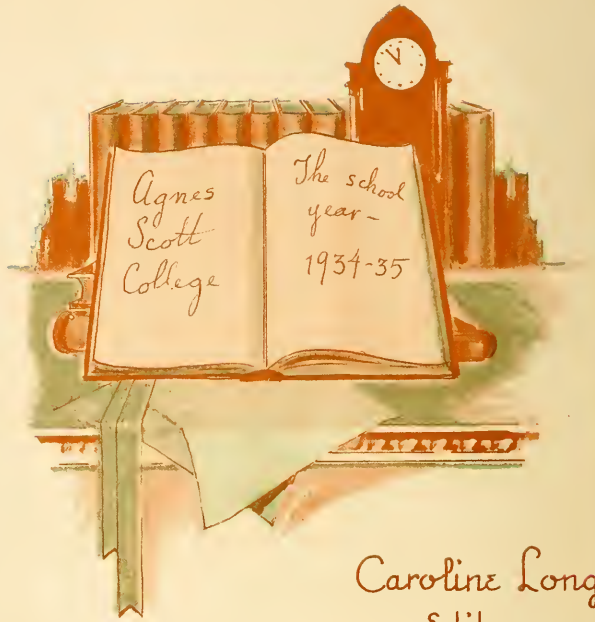 Agnes
Scott
College
The school
year-
1934-35
Caroline Long